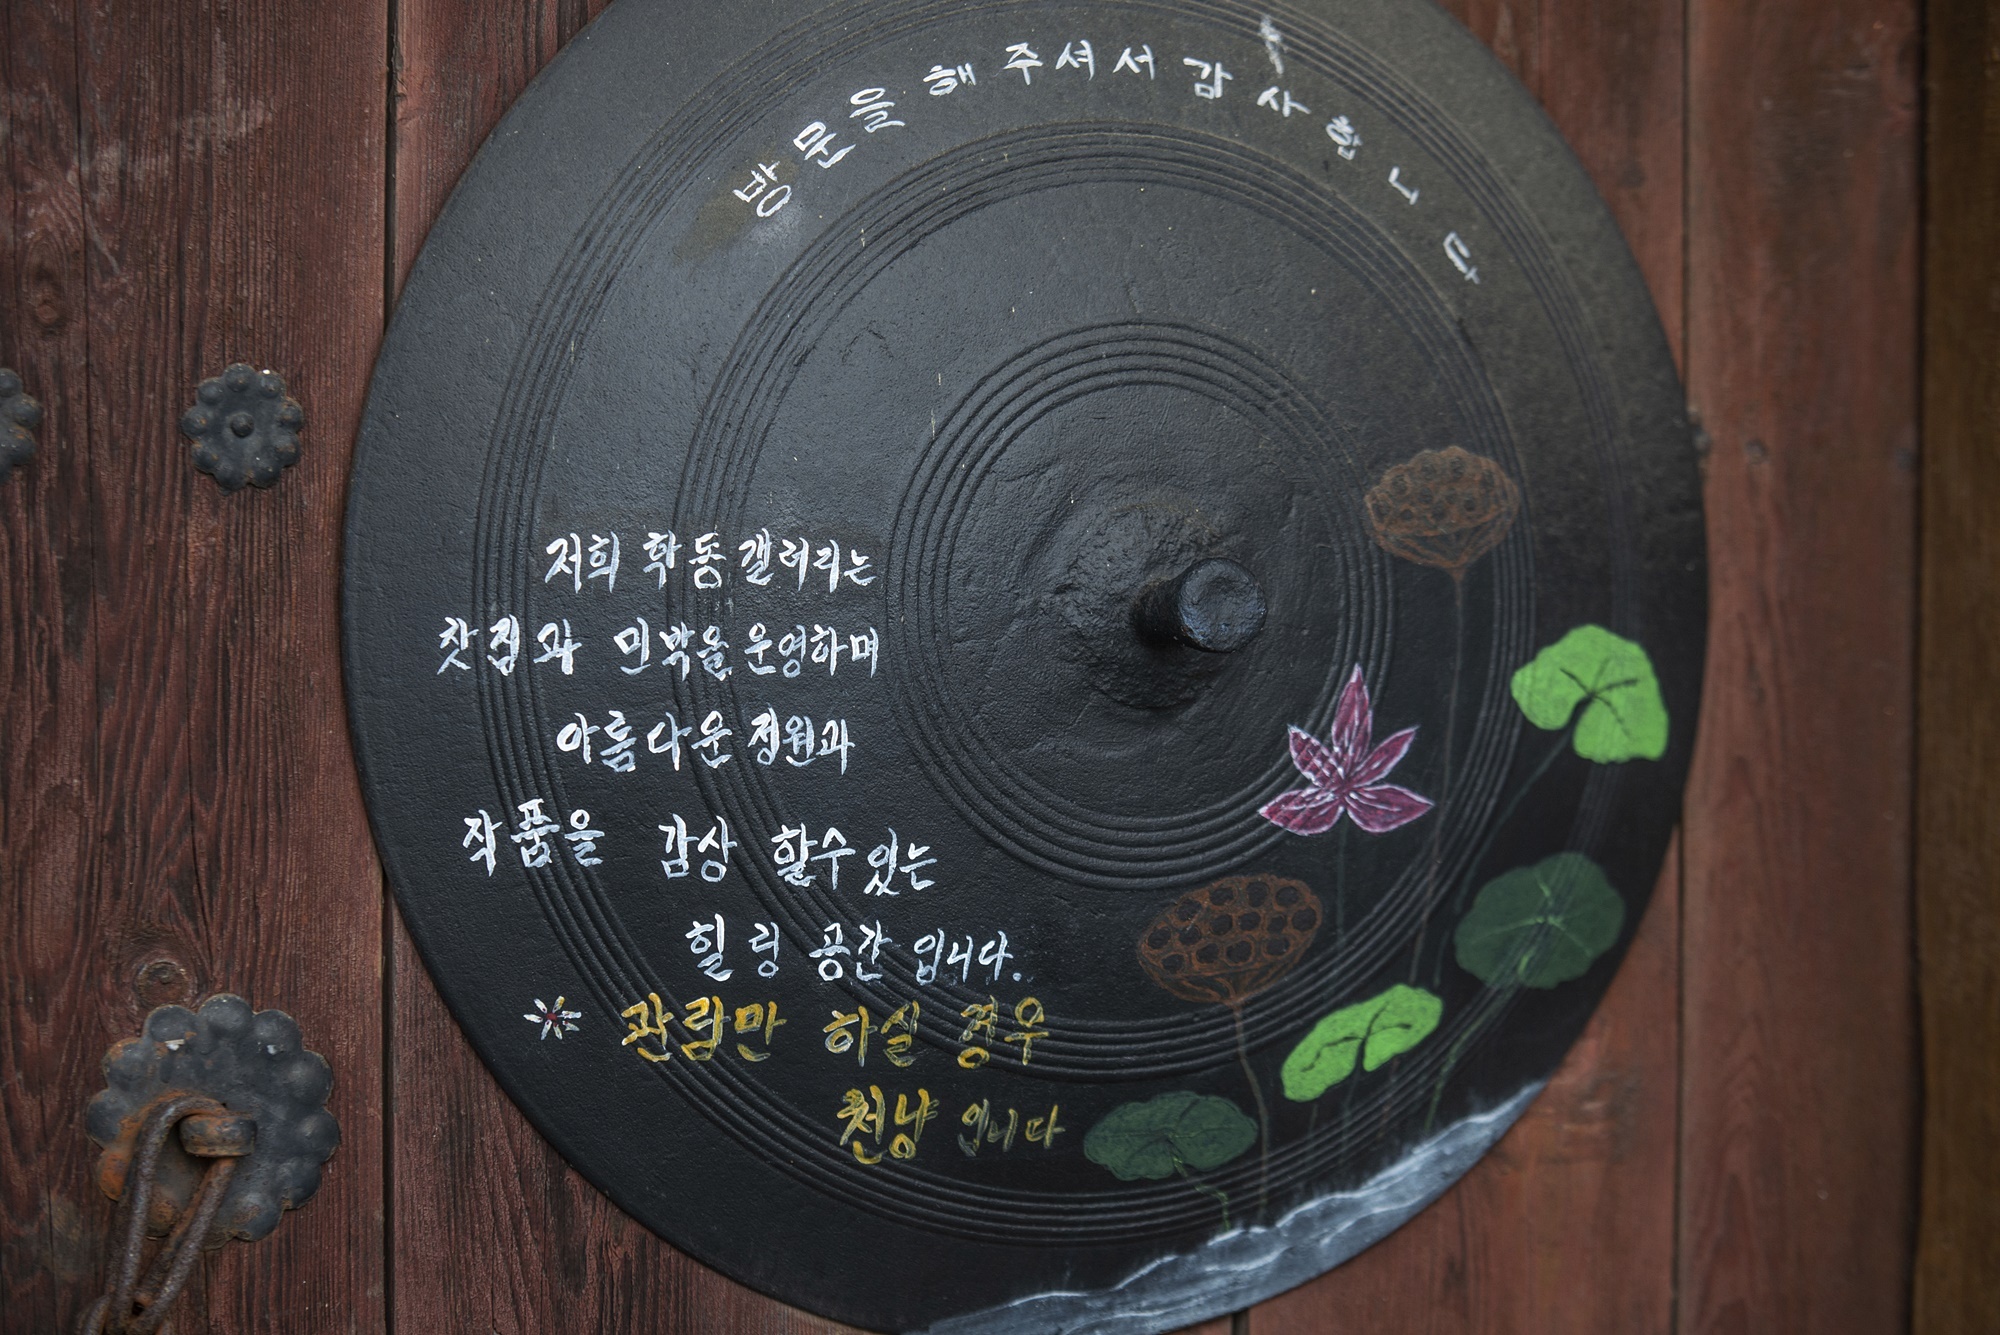 방문을 해 주셔서 감사합니다
저희 학동갤러리는
찻집과 민박을 운영하며
아름다운 정원과
작품을 감상 할수있는
힐링 공간 입니다.
※ 관람만 하실 경우
천냥 입니다